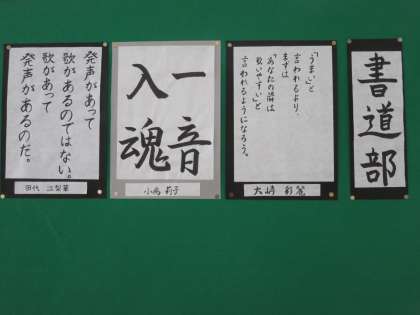 書道部
「うまい」と
言われるより、
まずは
「あなたの隣は
歌いやすい」と
言われるようになろう。
大崎 彩花
一音
入魂
小嶋 莉子
発声があって
歌があるのではない。
歌があって
発声があるのだ。
田代